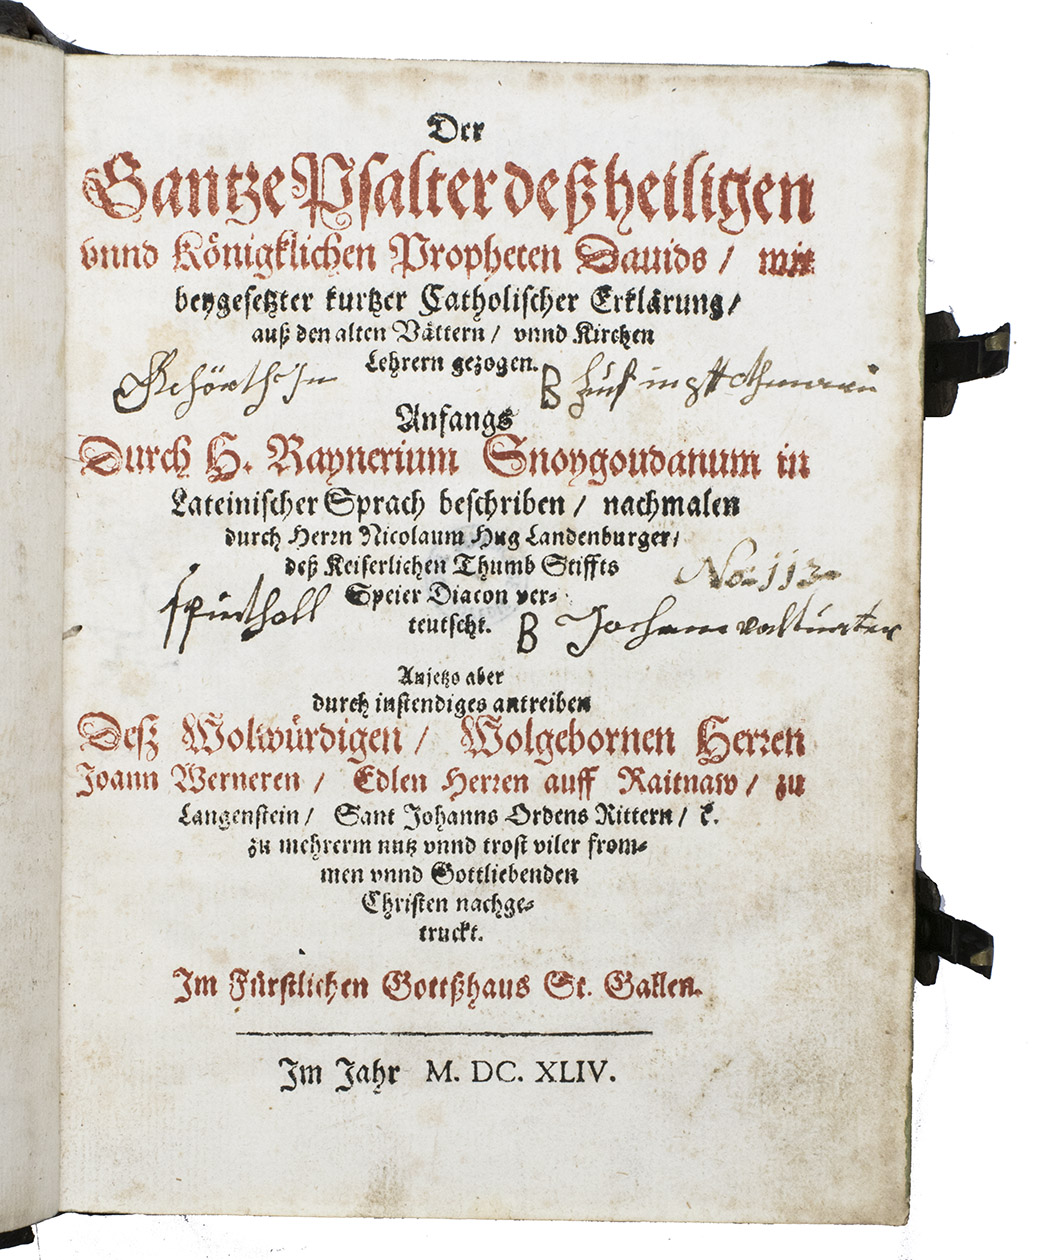 Der
Gantze Psalter deß heiligen
vnnd Königklichen Propheten Dauids / mit
beygesetzter kurtzer Catholischer Erklärung /
auß den alten Vättern / vnnd Kirchen
Lehrern gezogen.
Gehörth In
B
Anfangs
Durch H. Raynerium Snoygoudanum in
Lateinischer Sprach beschriben / nachmalen
durch Herrn Nicolaum Hug Landenburger /
deß Keiserlichen Thumb Stiffts
No: 113
Speier Diacon ver-
teutscht.
B
Anjetzo aber
durch instendiges antreiben
Deß Wolwürdigen / Wolgebornen Herren
Joann Werneren / Edlen Herren auff Raitnaw / zu
Langenstein / Sant Johanns Ordens Rittern / ꝛc.
zu mehrerm nutz vnnd trost viler from-
men vnnd Gottliebenden
Christen nachge-
truckt.
Im Fürstlichen Gottßhaus St. Gallen.
Im Jahr M. DC. XLIV.